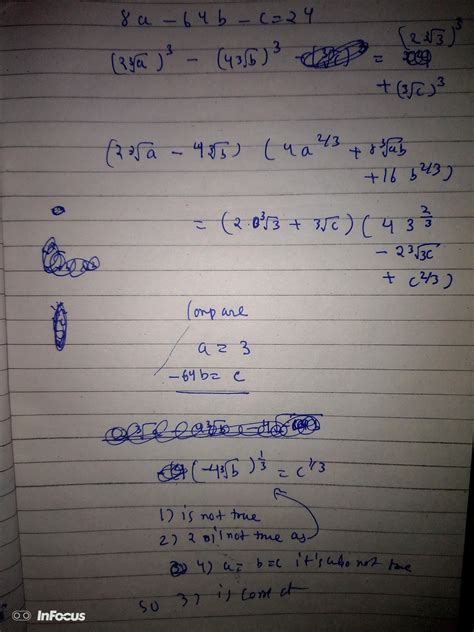 8a - 64b - c = 24
(2∛a)³ - (4∛b)³ = (2∛3)³
+ (∛c)³
(2∛a - 4∛b) (4a^2/3 + 8∛ab
+ 16 b^2/3)
= (2∛3 + ∛c) (4 3^2/3
- 2∛3c
+ c^2/3)
Compare
a = 3
-64b = c
(-4∛b)^1/3 = c^1/3
1) is not true
2) is not true as
4) a = b = c it's also not true
so 3) is correct
InFocus